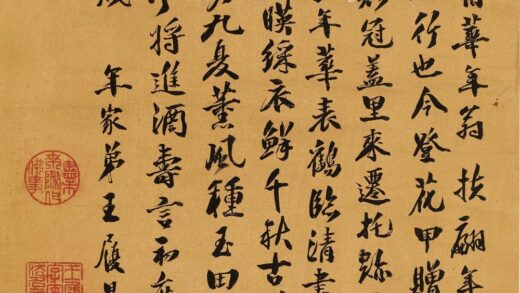 華年翁 扶翩年
行也今登花甲贈
冠蓋里來遷托跡
年華表鶴臨清
暎綵衣鮮千秋古
九夏薰風種玉田
將進酒壽言初
年家弟王履